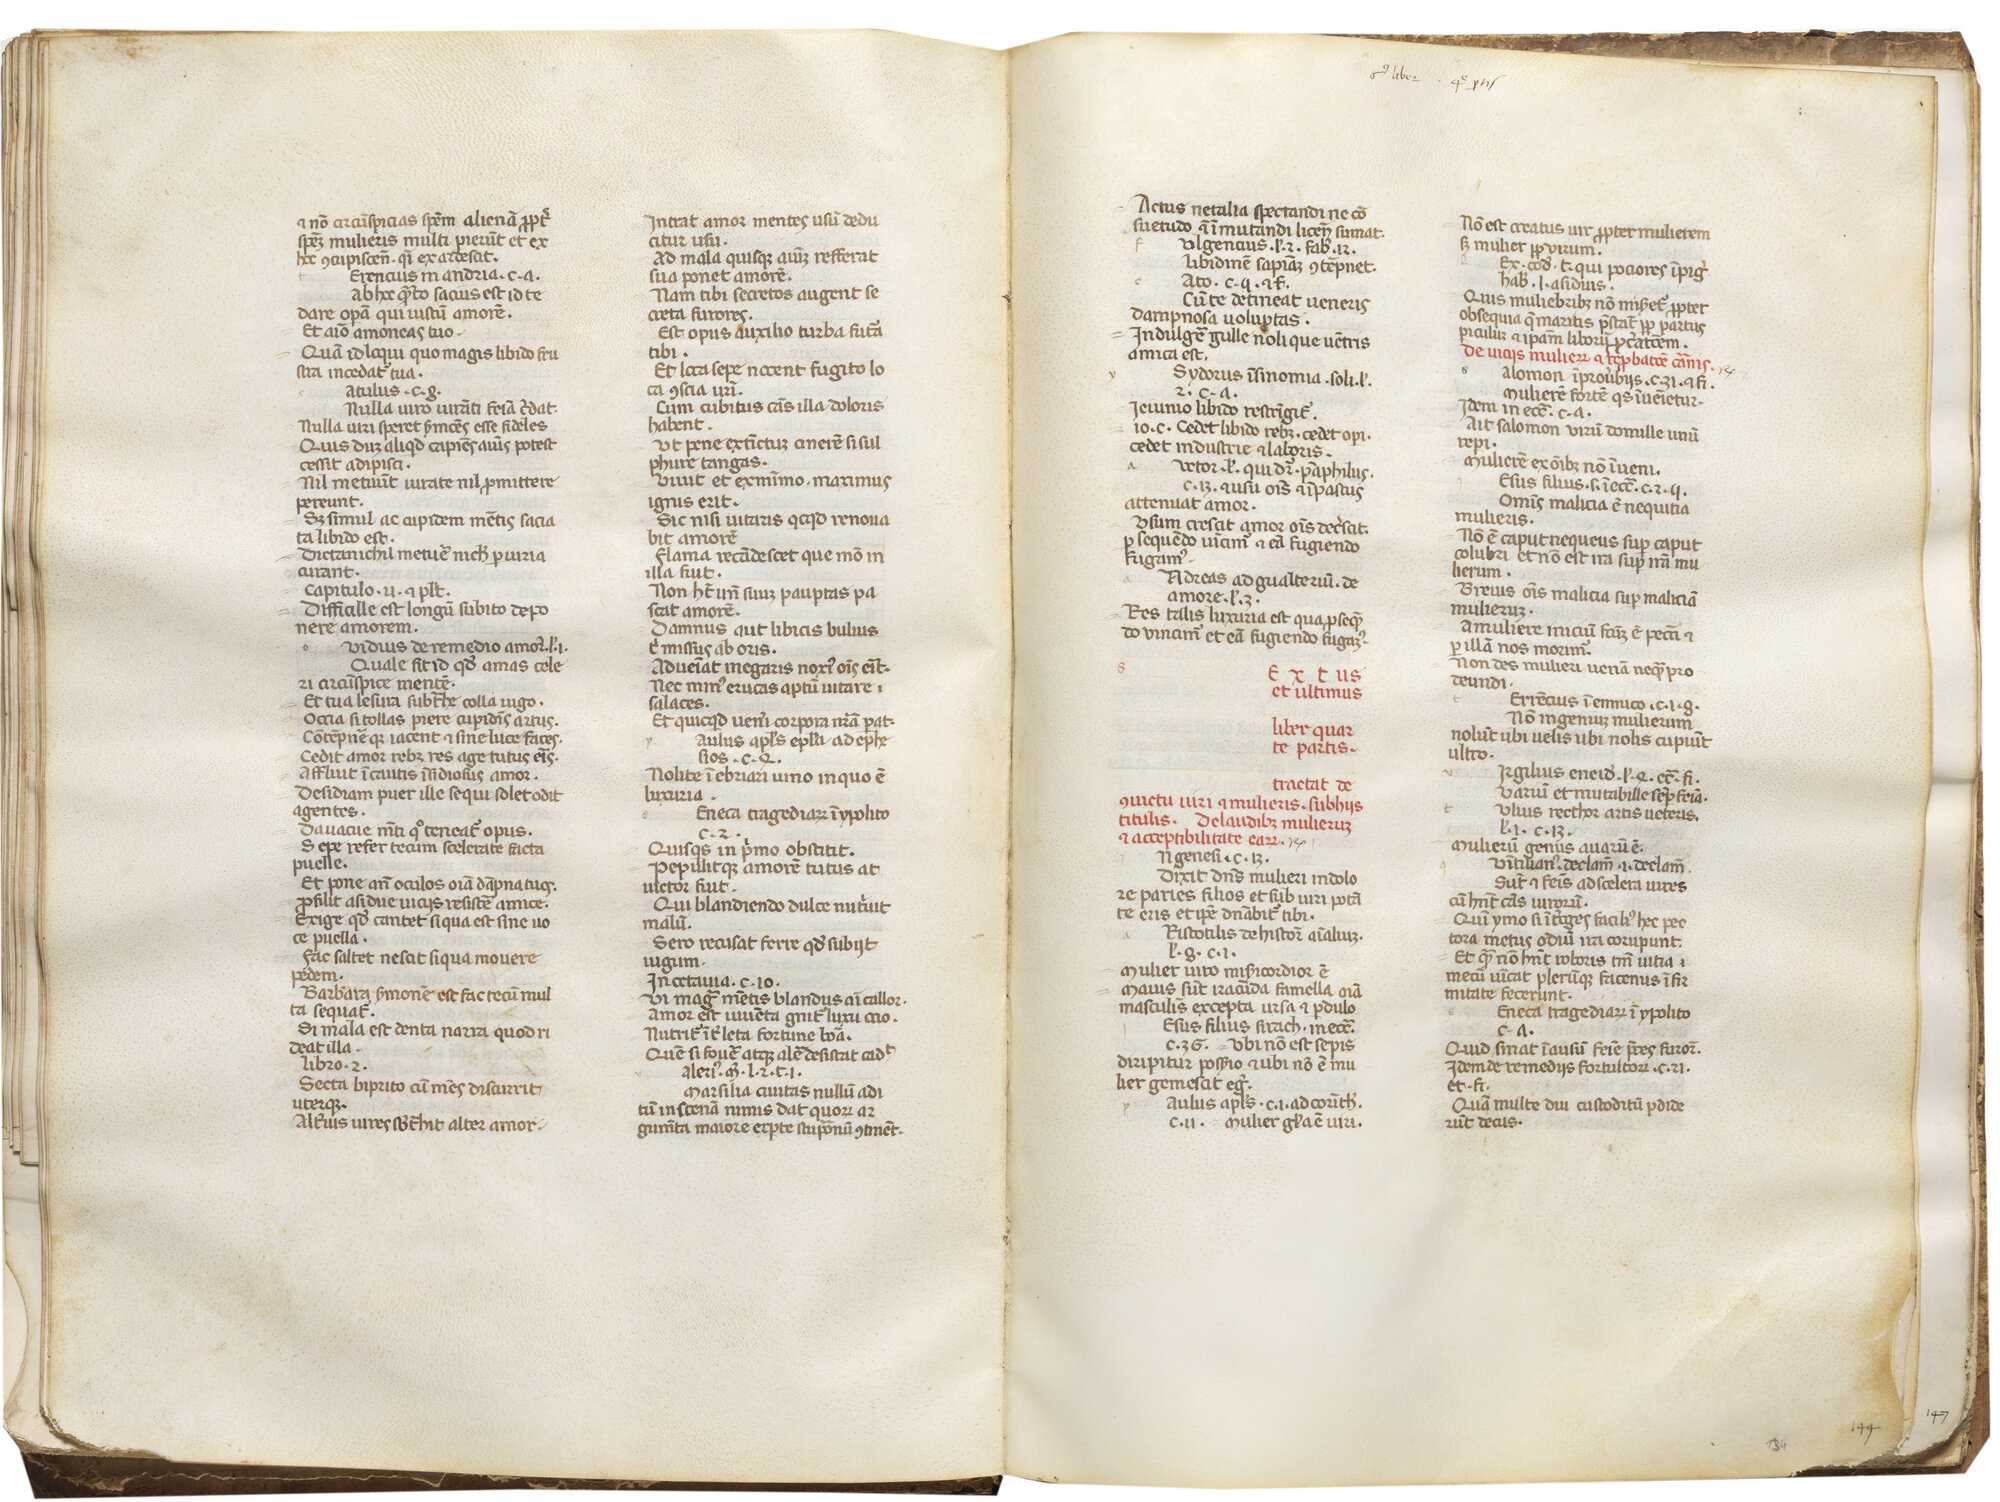 ⁊ nō circūspicias spēm alienā ꝓpt̄
spēz mulieris multi pierūt et ex
hoc ↄcupiscen̄. q̄i exardescit.
Erencius in andria. c. 4.
ab hoc satius est id te
dare opā qui istū amorē.
Et aīo amoneas tuo.
Quā id loqui quo magis libido fru
stra incedat̄ tua.
atulus. c. 8.
Nulla uiro iurāti feīa c̄dat.
Nulla uiri speret ẜmōēs esse fideles
Quis duz aliqd capiēs aīus potest
cessit adipisci.
Nil metuūt iurate nil ꝓmittere
pereunt.
Sz simul ac cupidem mētis sacia
ta libido est.
Dicta nichil metuēr nich̄ piuria
curant.
Capitulo. 11. ⁊ pl̄t.
Difficille est longū subito depo
nere amorem.
o vidius de remedio amor̄. l̄. 1.
Quale sit id qd̄ amas cele
ri circūspice mentē.
Et tua lesura subt̄he colla iugo.
Occia si tollas piere cupidīs artus.
Cōtēpnē qꝫ iacent ⁊ sine luce faces.
Cedit amor rebꝫ res age tutus eīs.
Affluit īcautis īsidiosus amor.
Desidiam puer ille sequi solet odit
agentes.
Da uacue mt̄i qͦ teneat̄ opus.
Sepe refer tecum scelerate facta
puelle.
Et pone an̄ oculos oīa dāpna tuꝫ.
ꝓfilit asidue uicijs resistē amice.
Exige qd̄ cantet si qua est sine uo
ce puella.
Fac saltet nescit siqua mouere
pēdem.
Barbara ẜmone est fac tecū mul
ta sequat̄.
Si mala est denta narra quod ri
deat illa.
Libro. 2.
Secta biprito cū mēs discurrit
uterqꝫ.
Alt̄ius uires sb̄t̄hit alter amor.
Intrat amor mentes usū dedu
citur usu.
Ad mala quisqꝫ aīuz refferat
sua ponet amorē.
Nam tibi secretos augent se
creta furores.
Est opus auxilio turba fut̄a
tibi.
Et loca sepe nocent fugito lo
ca ↄscia ur̄i.
Cum cubitus cās illa doloris
habent.
Vt pene extīctuꝫ cinerē si sul
phure tangas.
Viuit et ex mīmo. maximus
ignis erit.
Sic nisi uitaris qcqd renoua
bit amorē
Flama recādescet que mō in
illa fuit.
Non ht̄ un̄ suuz pauptas pa
scat amorē.
Damnus aut libicis bulius
t̄ missus ab oris.
Adueīat megaris noxiꝰ oīs cīb̄.
Nec minꝰ erucas aptū uitare ⁊
salaces.
Et quicqd ueneri corpora nr̄a pat.
p Aulus apl̄s epl̄a ad ephe
sios. c. 4.
Nolite īebriari uino in quo ē
luxuria.
s Eneca tragediaꝝ ī ypolito
c. 2.
Quisqs in p̄mo obstitit.
Pepulitqꝫ amorē tutus at
uictor fuit.
Qui blandiendo dulce nut̄uit
malū.
Sero recusat ferre qd̄ subijt
iugum.
In octauia. c. 10.
Vi mag̅ mētis blandus aī callor.
Amor est iuuēta gnit̄ luxu ocio.
Nutrit̄ īt̄ leta fortune bōa.
Quē si fouē atqꝫ alē desistat cadt̄
aleriꝰ. m̄. l. 2. t. 1.
Marsilia ciuitas nullū adi
tū in scenā mimis dat quoꝝ ar
gum̄ta maiore expte stuproꝝ ↄtinēt.
6ꝰ liber . 4ᵉ ptis
Actus netalia spectandi ne cō
suetudo ā īmutandi licen̄ sumat.
f vlgencius. l̄. 2. fab̄. 12.
libidinē sapiāz ↄtēpnet.
c Ato. c. 4. ⁊ f̄.
Cū te detineat ueneris
dampnosa uoluptas.
Indulgē gulle noli que uētris
amica est.
y Sydorus ī sinomia. soli. l̄.
2. c. 4.
Jeiunio libido restrīgit̄.
10. c. Cedet libido rebꝫ. cedet opi.
cedet industrie ⁊ laboris.
a vctor. l̄. qui dr̄. pāphilus.
c. 13. ⁊ usu oīs ⁊ īpastus
attenuat amor.
Vsum crescit amor oīs dec̄scit.
p sequēdo uīcimꝰ ⁊ eā fugiendo
fugamꝰ.
a Ndreas ad gualteriū. de
amore. l̄. 3.
Res talis luxuria est qua ꝓseqn̄
do uincimꝰ et eā fugiendo fugaꝫ.
s E x t us
et ultimus
liber quar
te partis.
tractat de
ↄuictu uiri ⁊ mulieris. sub hijs
titulis. De laudibꝫ mulieruz
⁊ acceptibilitate eaꝝ.
I N genesi. c. 13.
Dixit dn̄s mulieri in dolo
re paries filios et sub uiri potā
te eris et ip̄e dn̄abit̄ tibi.
a Ristotilis de histor̄ aīaliuꝫ.
l̄. 8. c. 1.
Mulier uiro misicordior ē
Maius sūt iracūda famella oīa
masculis excepta ursa ⁊ pdulo
I Esus filius sirach. in ecc̄.
c. 36. Vbi nō est sepis
diripitur possio ⁊ ubi nō ē mu
lier gemescit eg̅.
p Aulus apl̄s. c. 1. ad corīth̄.
c. 11. Mulier gl̄a ē uiri.
Nō est creatus uir ꝓpter mulierem
sꝫ mulier ꝓp uirum.
Ex. cod̄. t. qui pociores īpig̅
hab̄. l. asiduis.
Quis muliebribꝫ nō misēt̄ ꝓpter
obsequia q̄ maritis p̄stat̄ ꝓp partus
piculuꝫ ⁊ ipam liboꝝ ꝓcatōem.
De uicijs mulieꝝ ⁊ rep̄batōe cānis.
s alomon ī prouībijs. c. 31. ⁊ fi.
Mulierē fortē qs īueīetur.
Idem in ecc̄. c. 4.
Ait salomon uirū de mille unū
repi.
Mulierē ex oībꝫ nō īueni.
I Esus filius. s. ī ecc̄. c. 24.
Omīs malicia ē nequitia
mulieris.
Nō ē caput nequeus sup caput
colubri et nō est ira sup irā mu
lierum.
Breuis oīs malicia sup maliciā
mulieruꝫ.
A muliere iniciū fcūꝫ ē pcc̄i ⁊
p illā nos morimꝰ.
Non des mulieri uenā neqꝫ pro
deundi.
t Errēcius ī ennuco. c. 18.
Nō ingeniuꝫ mulierum
nolūt ubi uelis ubi nolis cupiūt
ultro.
v Irgilius eneid̄. l̄. 4. cc̄. fi.
Variū et mutabille semp̄ feīa.
t vlius recthor artis ueteris.
l̄. 1. c. 13.
Mulierū genus auarū ē.
q vītilianꝰ. declam̄. 1. declam̄.
Sūt ⁊ feīs ad scelera uires
cū hn̄t cās uiroꝝ.
Quī ymo si īt̄roges faciliꝰ hec pec
tora metus odiū ira corupunt.
Et q̄ nō hn̄t roboris tm̄ uitia ⁊
mecū uīcat plerūqꝫ facenus īfir
mitate fecerunt.
s Eneca tragediaꝝ ī ypolito
c. 4.
Quid sinat īausū feīe p̄ces furor̄.
Idem de remedijs fortuitoꝝ. c. 21.
et. fi.
Quā multe diu custoditū pdide
rūt decus.
134
144
147